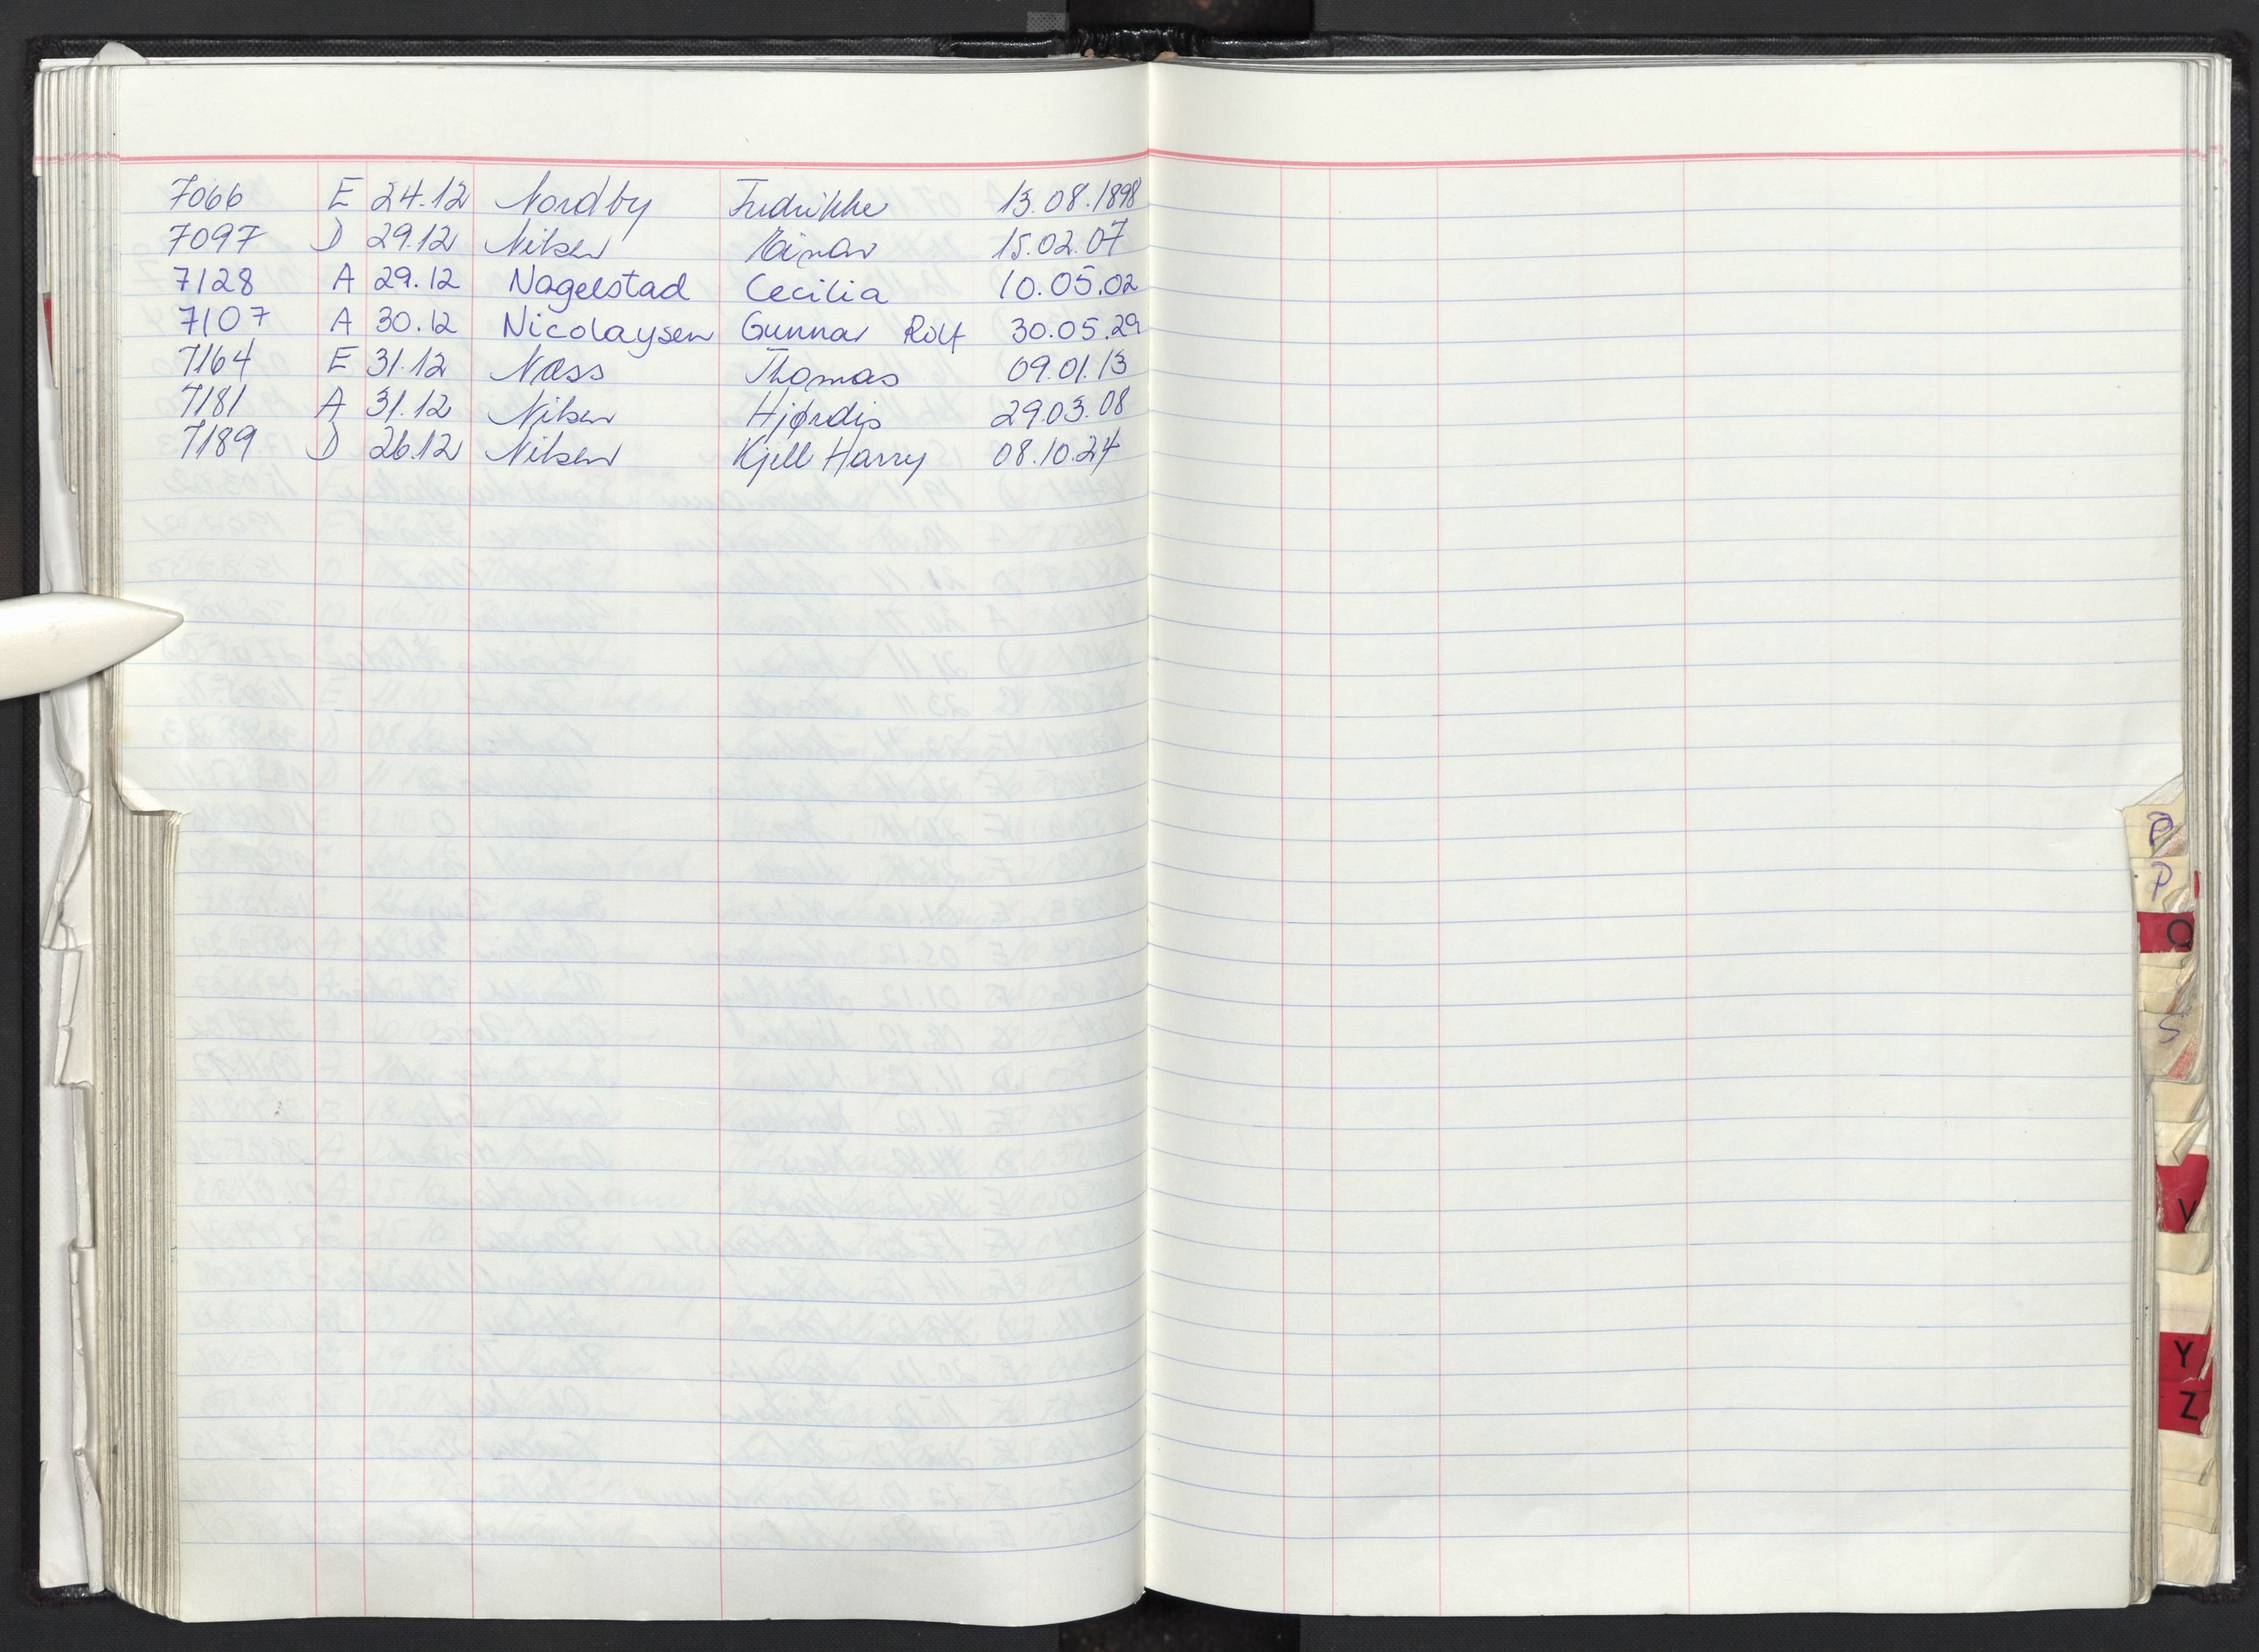 7066 E 24.12 Nordby Fredrikke 13.08.1898
7097 D 29.12 Nilsen Einar 15.02.07
7128 A 29.12 Nagelstad Cecilia 10.05.02
7107 A 30.12 Nicolaysen Gunnar Rolf 30.05.29
7164 E 31.12 Næss Thomas 09.01.13
7181 A 31.12 Nilsen Hjørdis 29.03.08
7189 D 26.12 Nilsen Kjell Harry 08.10.24
P
Q
S
V
Y
Z